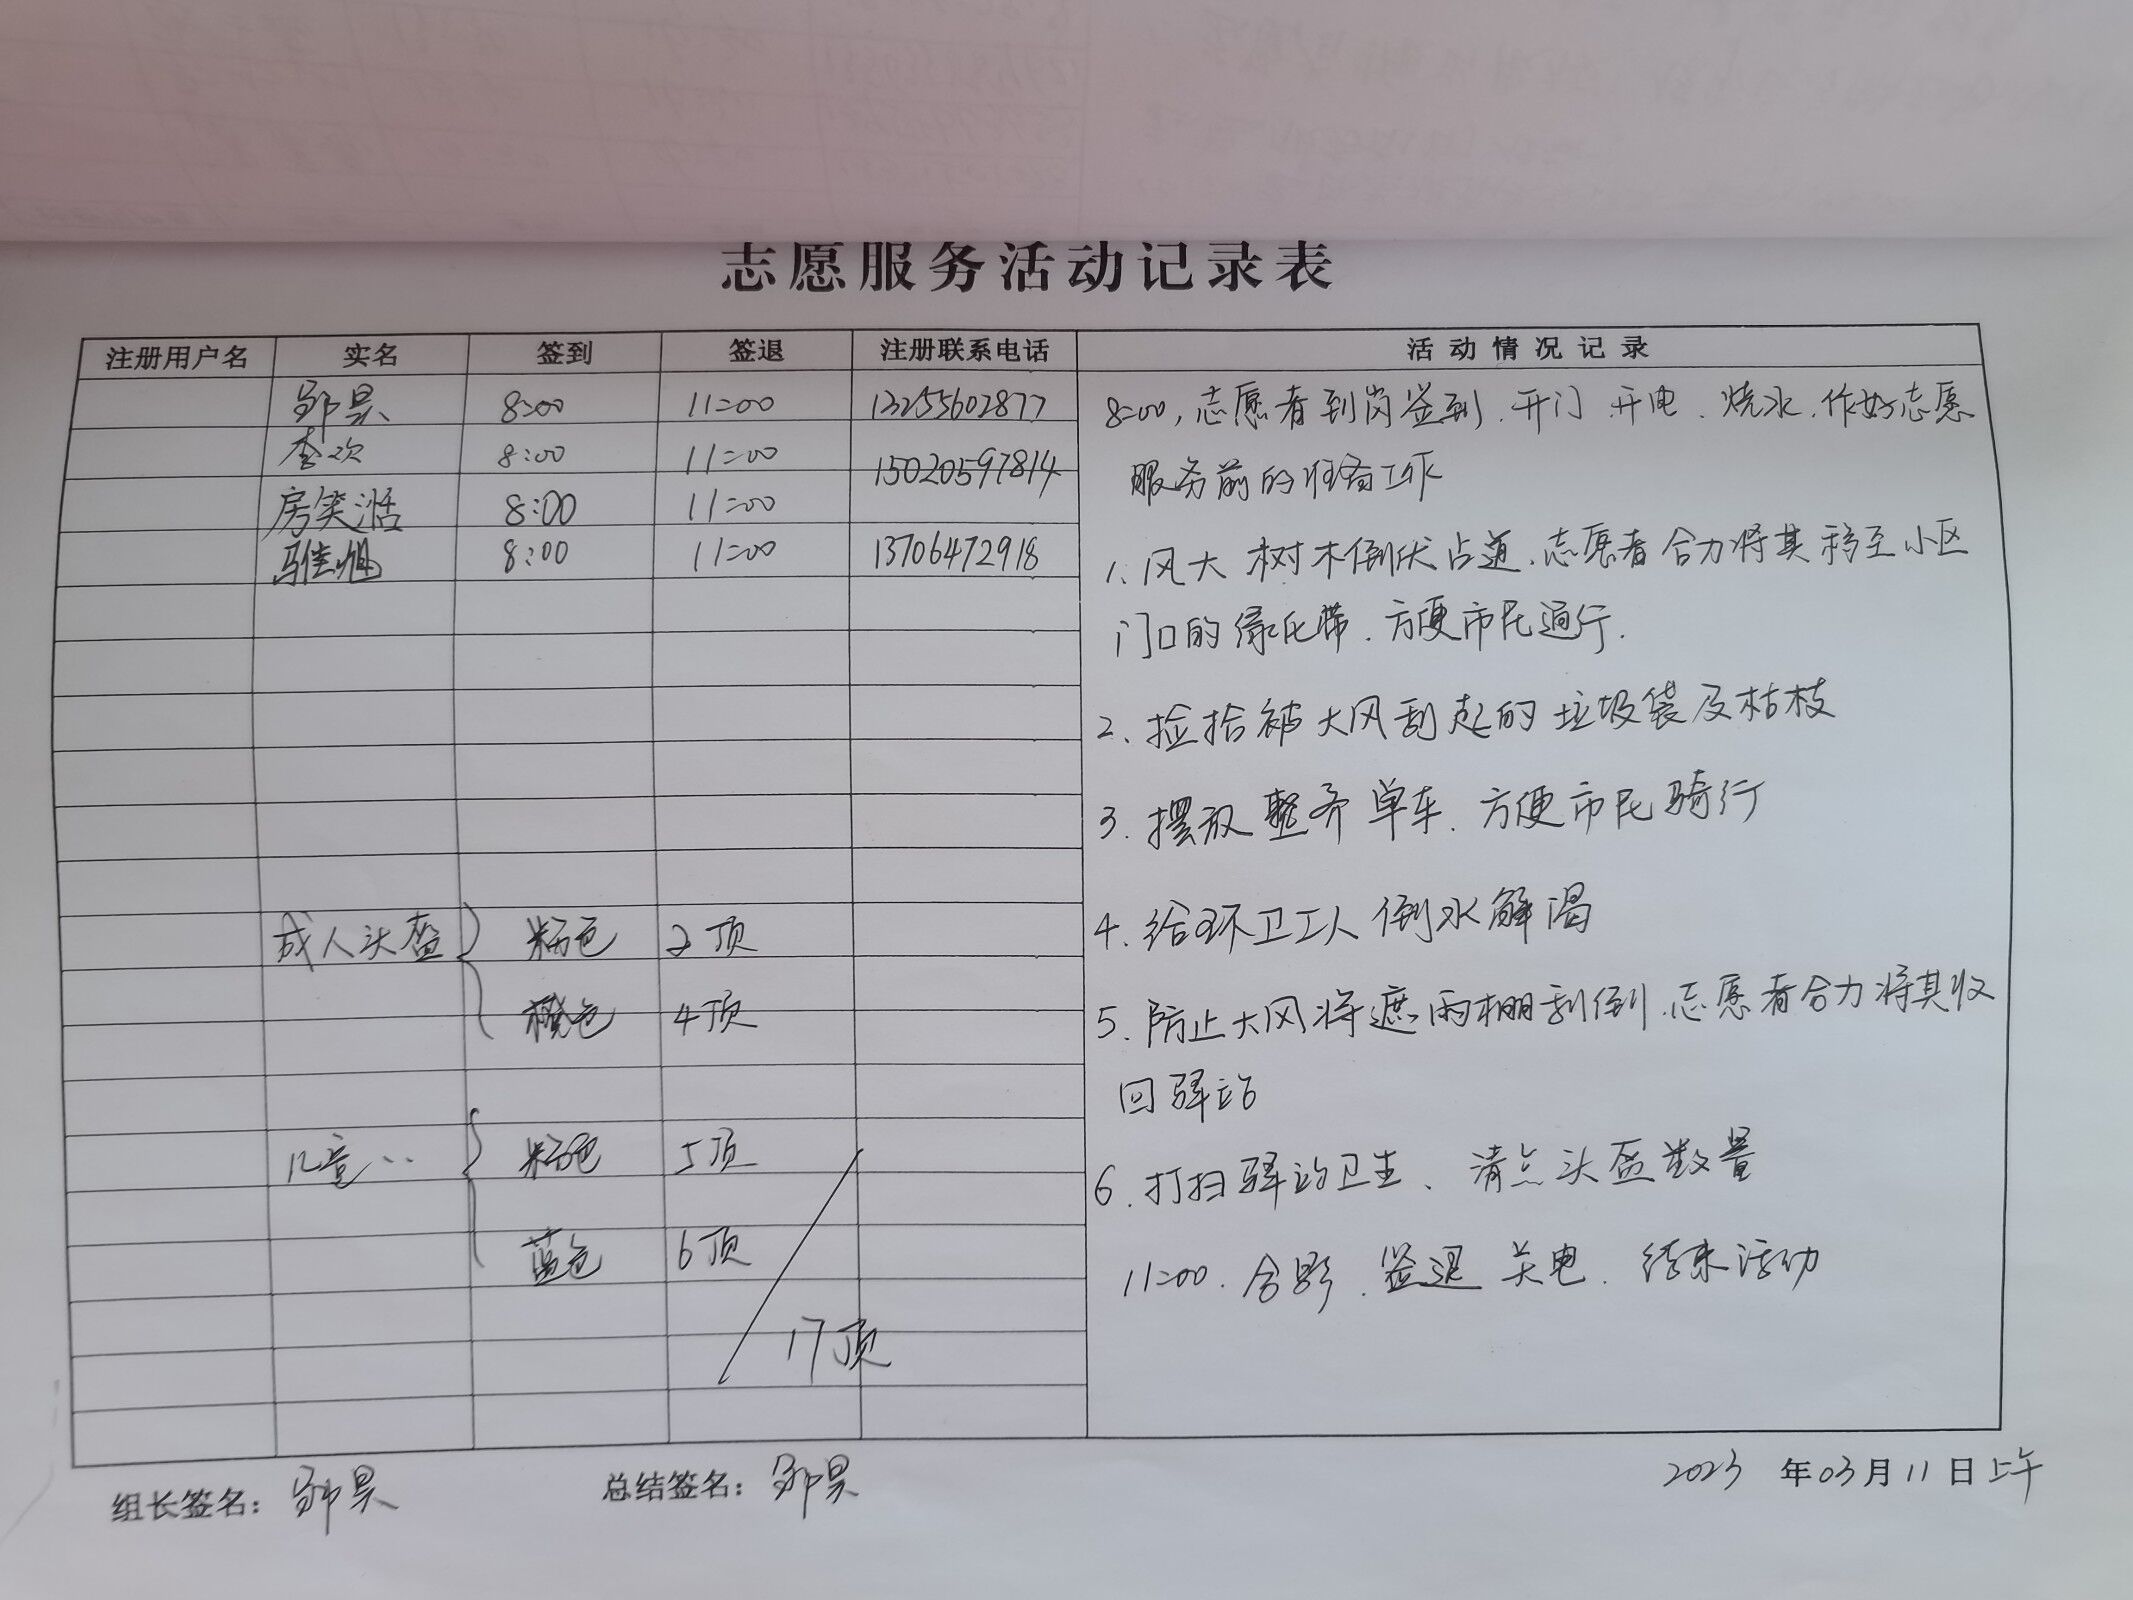 志愿服务活动记录表
注册用户名 实名 签到 签退 注册联系电话 活动情况记录
邹昊 8:00 11:00 13255602877
李欢 8:00 11:00 15020597814
房笑湉 8:00 11:00
8:00 11:00 13706472918
成人头盔 粉色 2顶
橙色 4顶
儿童‥ 粉色 5顶
蓝色 6顶
17顶
8:00,志愿者到岗签到.开门.开电.烧水.作好志愿
服务前的准备工作
1.风大 树木倒伏占道.志愿者合力将其移至小区
门口的绿化带.方便市民通行.
2、捡拾被大风刮起的垃圾袋及枯枝
3.摆放整齐单车.方便市民骑行
4.给环卫工人倒水解渴
5.防止大风将遮雨棚刮倒.志愿者合力将其收
回驿站
6.打扫驿站卫生、清点头盔数量
11:00.合影.签退 关电.结束活动
组长签名:邹昊 总结签名:邹昊 2023 年 03 月 11 日上午